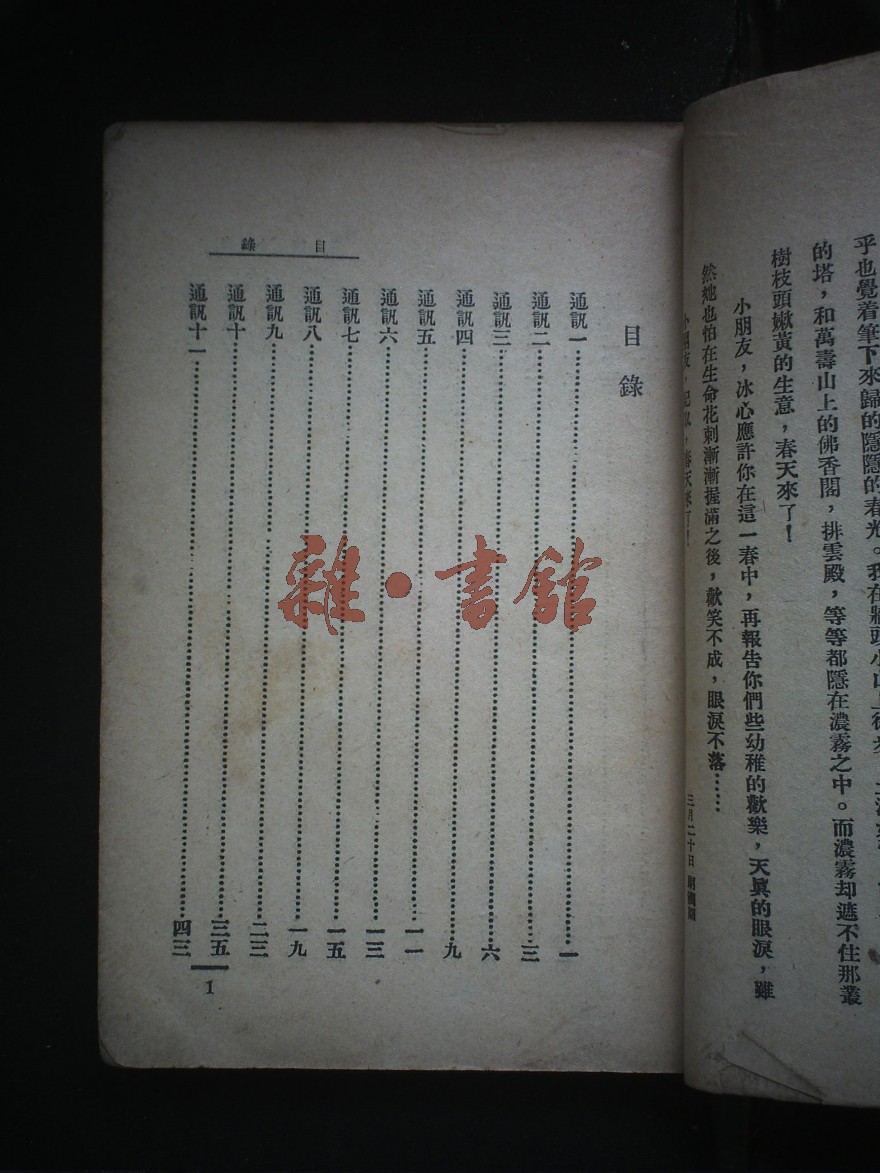 乎也覺着筆下來歸的隱隱的春光。我在
的塔，和萬壽山上的佛香閣，排雲殿，等等都隱在濃霧之中。而濃霧却遮不住那叢
樹枝頭嫩黃的生意，春天來了！
小朋友，冰心應許你在這一春中，再報告你們些幼稚的歡樂，天眞的眼淚，雖
然她也怕在生命花刺漸漸握滿之後，歡笑不成，眼淚不落……
春天來了！
三月二十日
目錄
目錄
通訊一……一
通訊二……三
通訊三……六
通訊四……九
通訊五……一一
通訊六……一三
通訊七……一五
通訊八……一九
通訊九……二三
通訊十……三五
通訊十一……四三
1
雜·書館